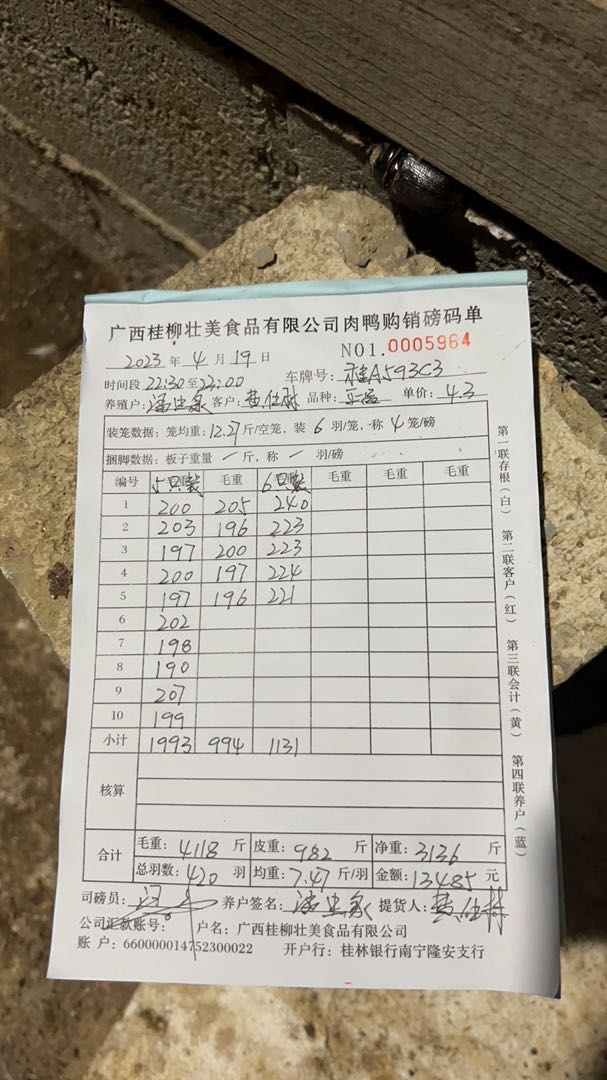 广西桂柳壮美食品有限公司肉鸭购销磅码单
2023 年 4 月 19 日 NO1.0005964
时间段 22:30 至 23:00 车牌号: 桂A593C3
养殖户: 客户: 黄仕 品种: 单价: 4.3
装笼数据: 笼均重: 12.27 斤/空笼, 装 6 羽/笼, 称 4 笼/磅
捆脚数据: 板子重量 / 斤, 称 / 羽/磅
编号 5只装 毛重 6只装 毛重 毛重 毛重
1 200 205 240
2 203 196 223
3 197 200 223
4 200 197 224
5 197 196 221
6 202
7 198
8 190
9 207
10 199
小计 1993 994 1131
核算
合计 毛重: 4118 斤 皮重: 982 斤 净重: 3136 斤
总羽数: 420 羽 均重: 7.47 斤/羽 金额: 13485 元
司磅员: 养户签名: 提货人: 黄仕
公司汇款账号: 户名: 广西桂柳壮美食品有限公司
账 户: 660000014752300022 开户行: 桂林银行南宁隆安支行
第一联存根(白) 第二联客户(红) 第三联会计(黄) 第四联养户(蓝)